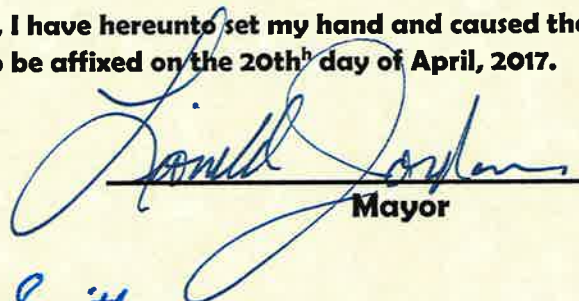 , I have hereunto set my hand and caused the
o be affixed on the 20thʰ day of April, 2017.
Mayor